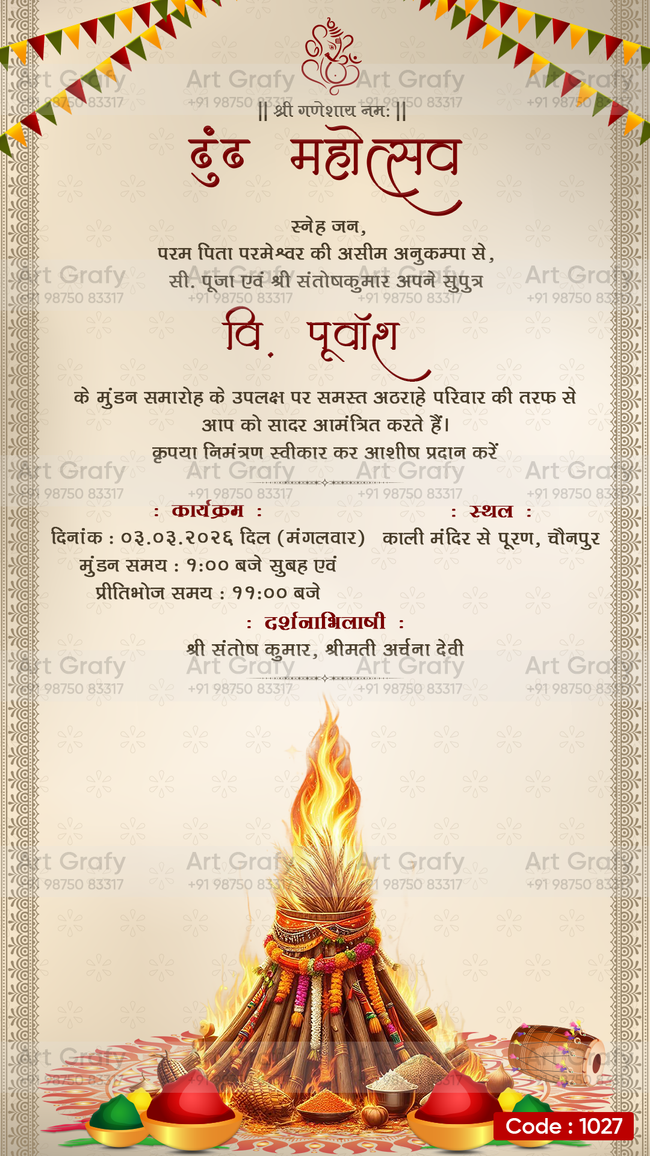 || श्री गणेशाय नम: ||
ढुंढ महोत्सव
स्नेह जन,
परम पिता परमेश्वर की असीम अनुकम्पा से,
सी. पूजा एवं श्री संतोषकुमार अपने सुपुत्र
वि. पूर्वांश
के मुंडन समारोह के उपलक्ष पर समस्त अठराहे परिवार की तरफ से
आप को सादर आमंत्रित करते हैं।
कृपया निमंत्रण स्वीकार कर आशीष प्रदान करें
: कार्यक्रम :
दिनांक : ०३.०३.२०२६ दिल (मंगलवार)
मुंडन समय : १:०० बजे सुबह एवं
प्रीतिभोज समय : ११:०० बजे
: स्थल :
काली मंदिर से पूरण, चौनपुर
: दर्शनाभिलाषी :
श्री संतोष कुमार, श्रीमती अर्चना देवी
Art Grafy
+91 98750 83317
Code : 1027